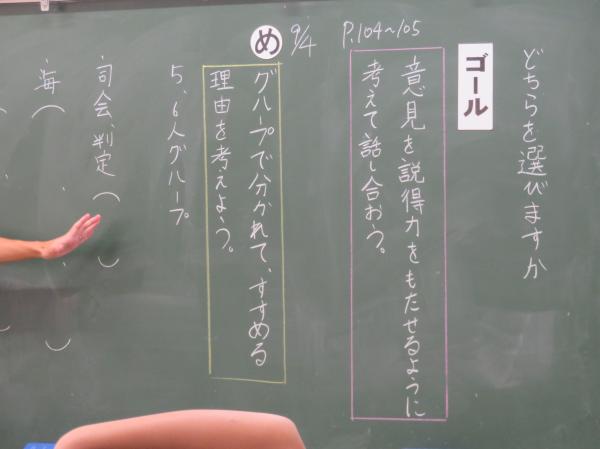 どちらを選びますか
ゴール
P.104~105
意見を説得力をもたせるように
考えて話し合おう。
9/4
め
グループで分かれて、すすめる
理由を考えよう。
5、6人グループ
・司会、判定( )
・海( )